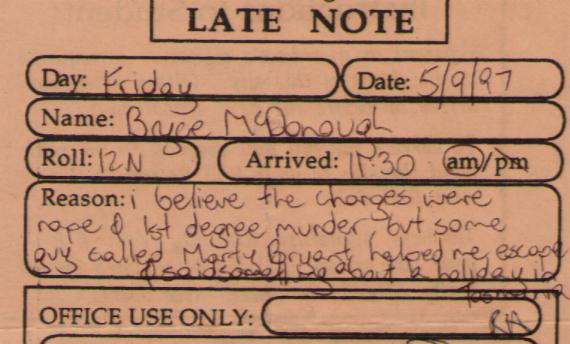 LATE NOTE
Day: Friday
Date: 5/9/97
Name: Bryce McDonough
Roll: 12N
Arrived: 11:30 am/pm
Reason: i believe the charges were
rape & 1st degree murder, but some
guy called Marty Bryant helped me escape
& said something about a holiday in
Tasmania
OFFICE USE ONLY: